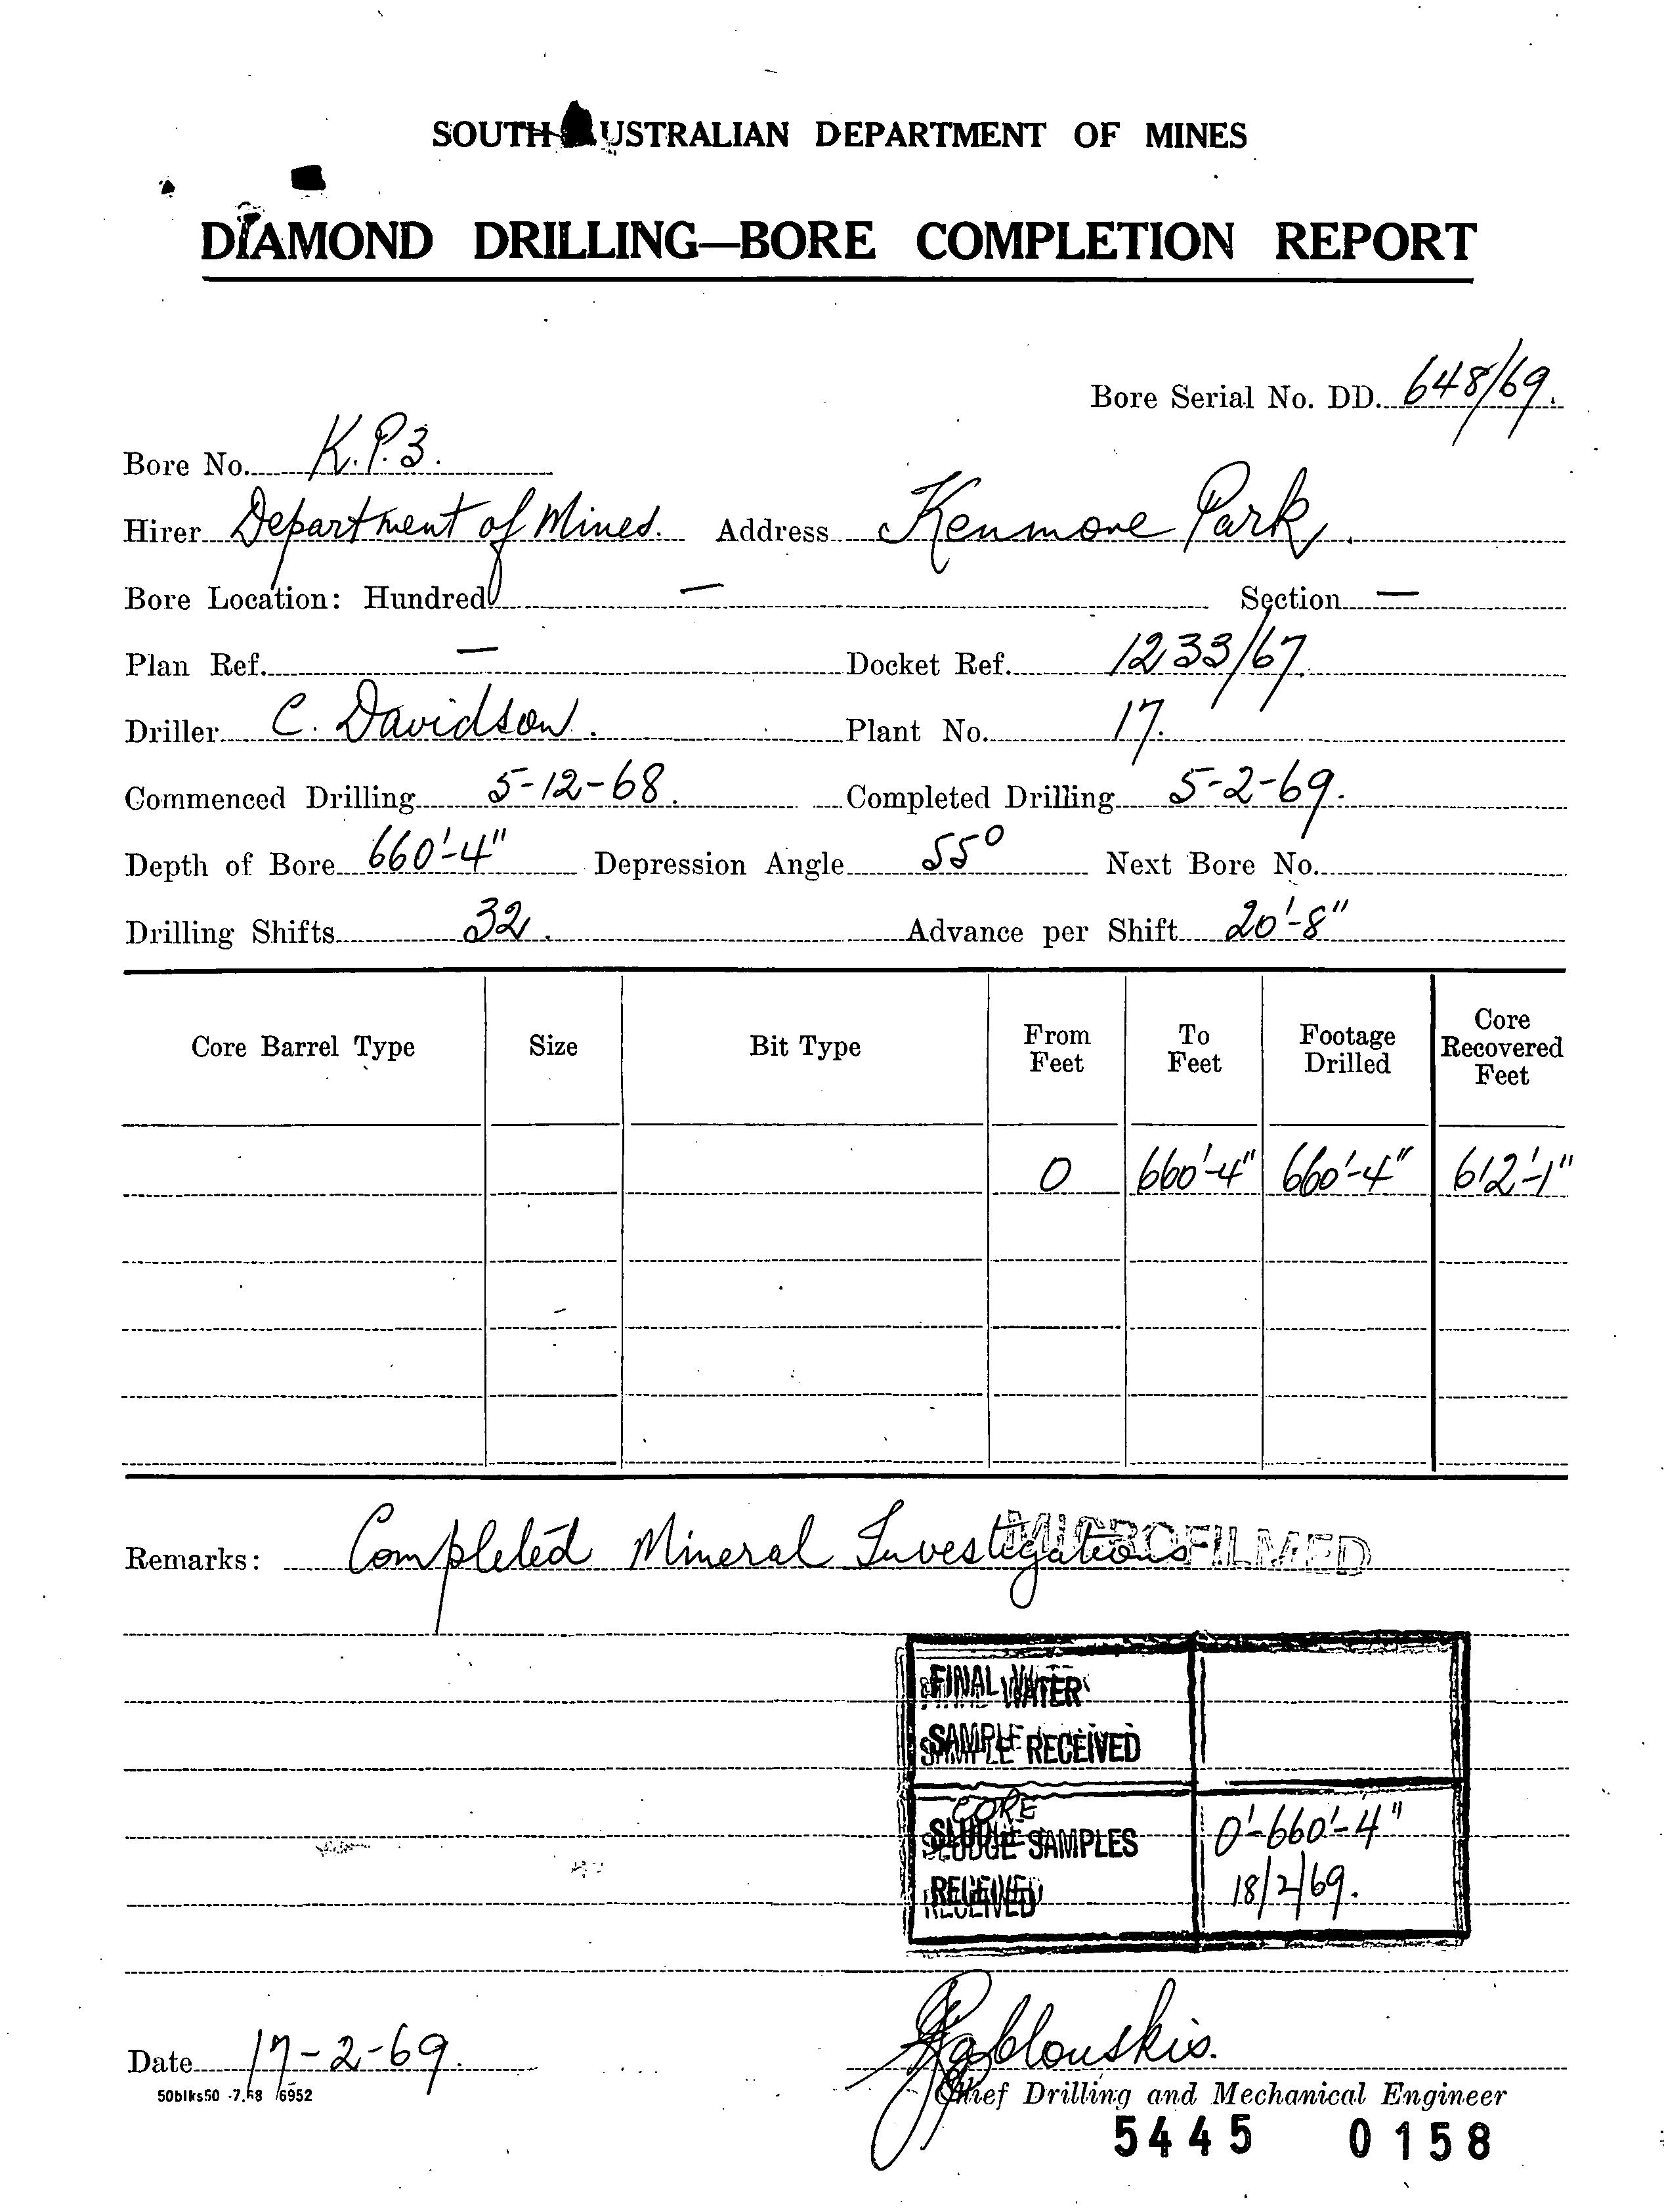 SOUTH AUSTRALIAN DEPARTMENT OF MINES
DIAMOND DRILLING—BORE COMPLETION REPORT
Bore Serial No. DD. 648/69.
Bore No. K.P.3.
Hirer Department of Mines. Address Kenmore Park.
Bore Location: Hundred — Section —
Plan Ref. — Docket Ref. 1233/67.
Driller C. Davidson. Plant No. 17.
Commenced Drilling 5-12-68. Completed Drilling 5-2-69.
Depth of Bore 660'-4" Depression Angle 55° Next Bore No.
Drilling Shifts 32. Advance per Shift 20'-8"
Core Barrel Type Size Bit Type From Feet To Feet Footage Drilled Core Recovered Feet
0 660'-4" 660'-4" 612'-1"
Remarks: Completed Mineral Investigations
MICROFILMED
FINAL WATER
SAMPLE RECEIVED
CORE
SLUDGE SAMPLES 0'-660'-4"
RECEIVED 18/2/69.
Date 17-2-69.
50blks50 -7.68 6952
Chief Drilling and Mechanical Engineer
5445 0158